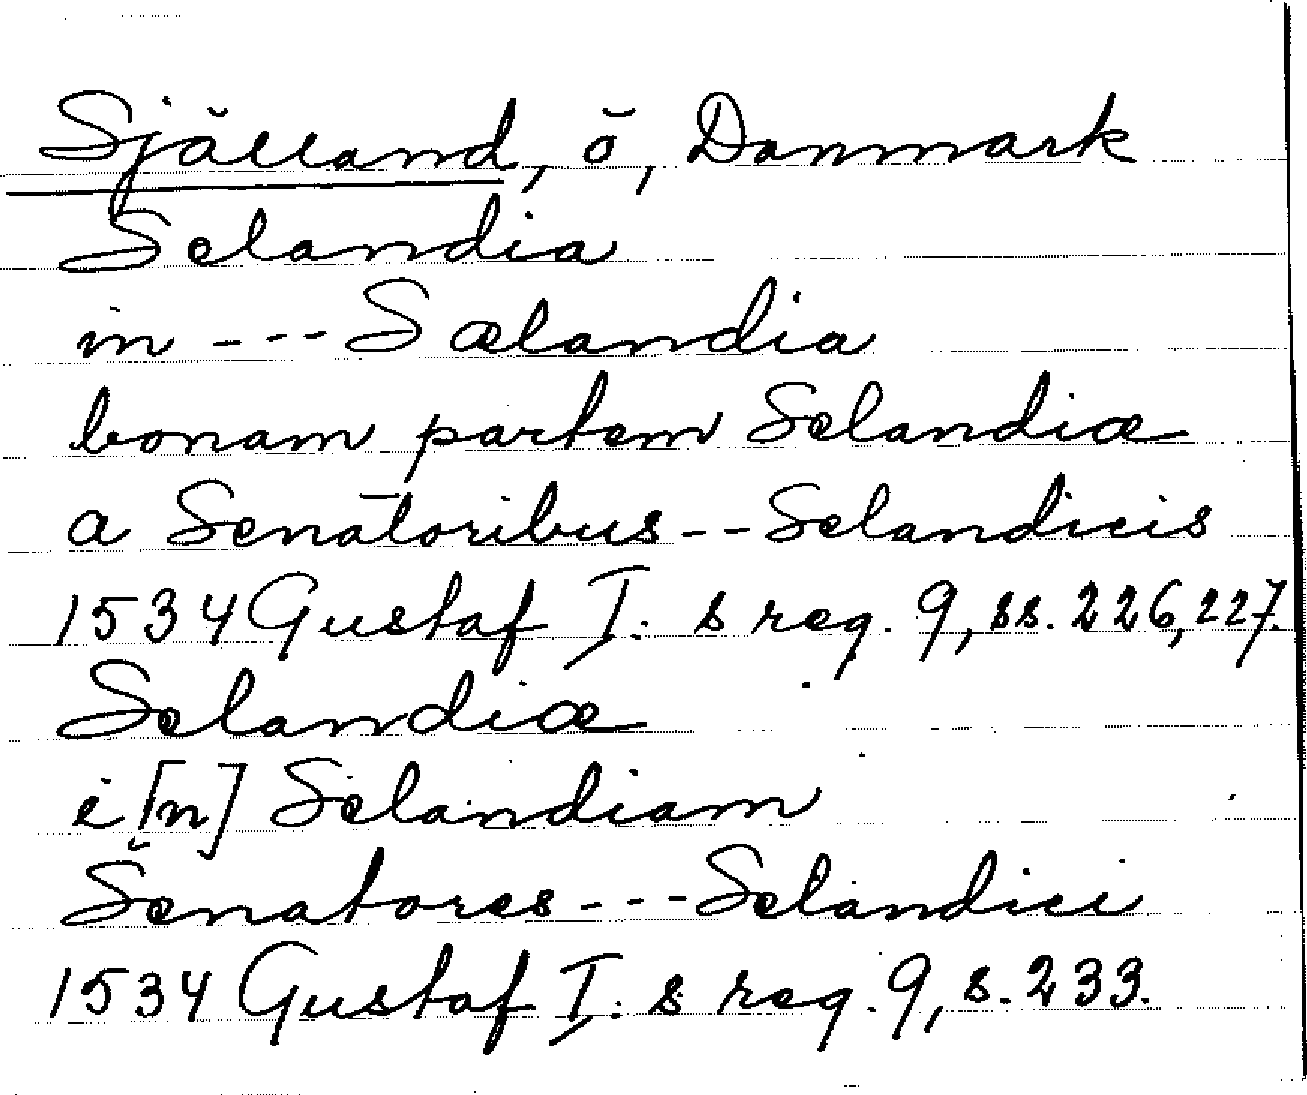 Själland, ö, Danmark
Selandia
in --- Sælandia
bonam partem Selandiæ
a Senatoribus -- Selandicis
1534 Gustaf I:s reg. 9, ss. 226, 227.
Selandiæ
i[n] Selandiam
Senatores --- Selandici
1534 Gustaf I:s reg. 9, s. 233.